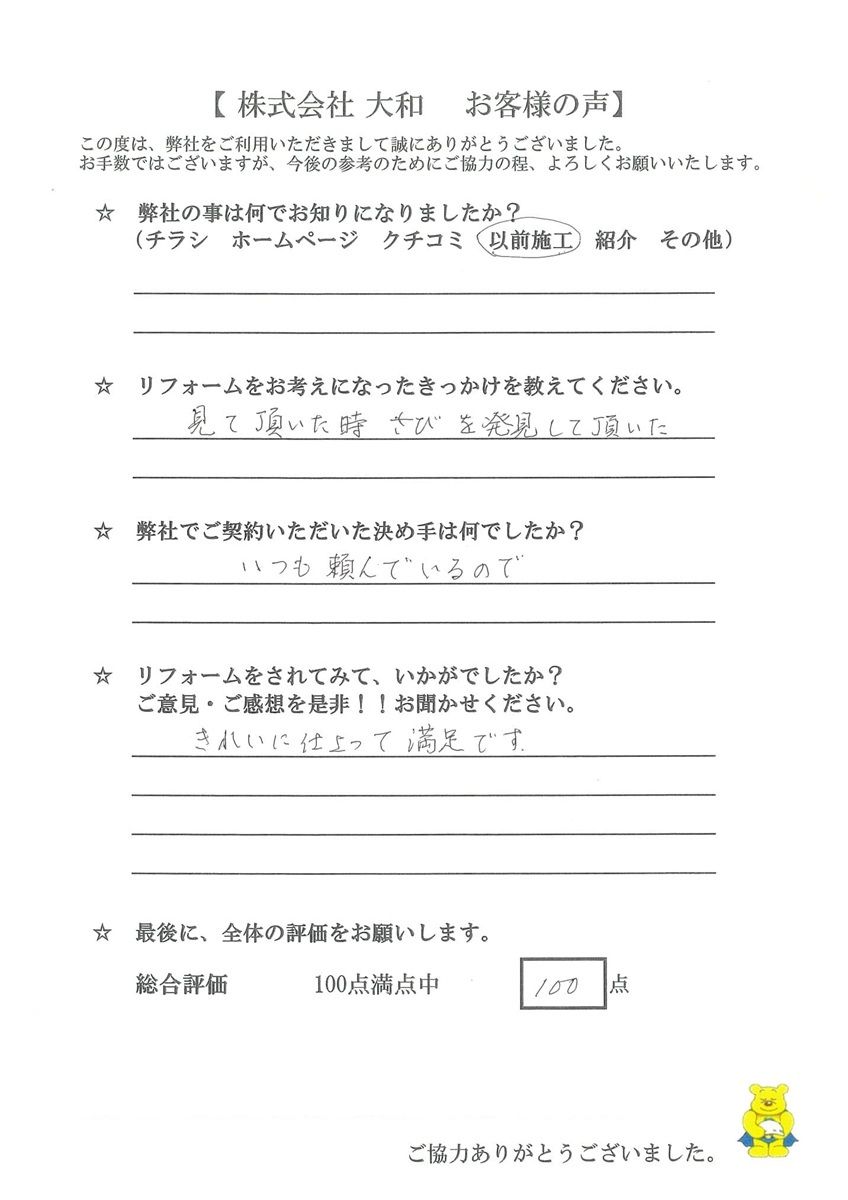 【 株式会社 大和　お客様の声】
この度は、弊社をご利用いただきまして誠にありがとうございました。
お手数ではございますが、今後の参考のためにご協力の程、よろしくお願いいたします。
☆ 弊社の事は何でお知りになりましたか？
（チラシ　ホームページ　クチコミ　以前施工　紹介　その他）
☆ リフォームをお考えになったきっかけを教えてください。
見て頂いた時 さびを発見して頂いた
☆ 弊社でご契約いただいた決め手は何でしたか？
いつも頼んでいるので
☆ リフォームをされてみて、いかがでしたか？
ご意見・ご感想を是非！！お聞かせください。
きれいに仕上って満足です
☆ 最後に、全体の評価をお願いします。
総合評価　100点満点中　100 点
ご協力ありがとうございました。